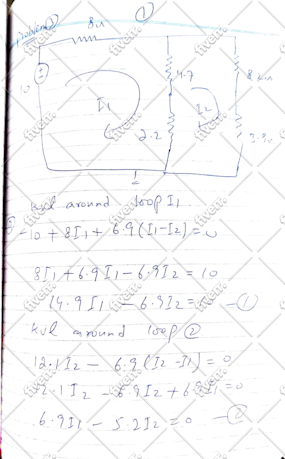 Problem ①
①
8Ω
10
4.7
2.2
I1
I2
kvl around loop I1.
-10 + 8I1 + 6.9(I1-I2) = 0
8I1 + 6.9I1 - 6.9I2 = 10
14.9I1 - 6.9I2 = —①
kvl around loop ②
12.1I2 - 6.9(I2-I1) = 0
12.1I2 - 6.9I2 + 6.9I1 = 0
6.9I1 - 5.2I2 = 0 —②